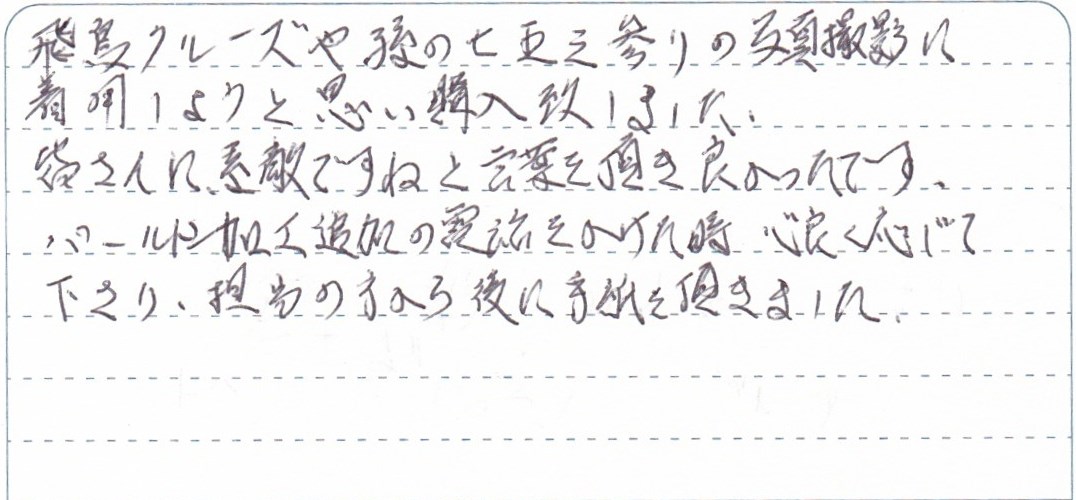 飛鳥クルーズや孫の七五三参りの写真撮影に
着用しようと思い購入致しました、
皆さんに素敵ですねと言葉を頂き良かったです。
パールド加工追加の電話をかけた時 心良く応じて
下さり、担当の方から後に手紙を頂きました。